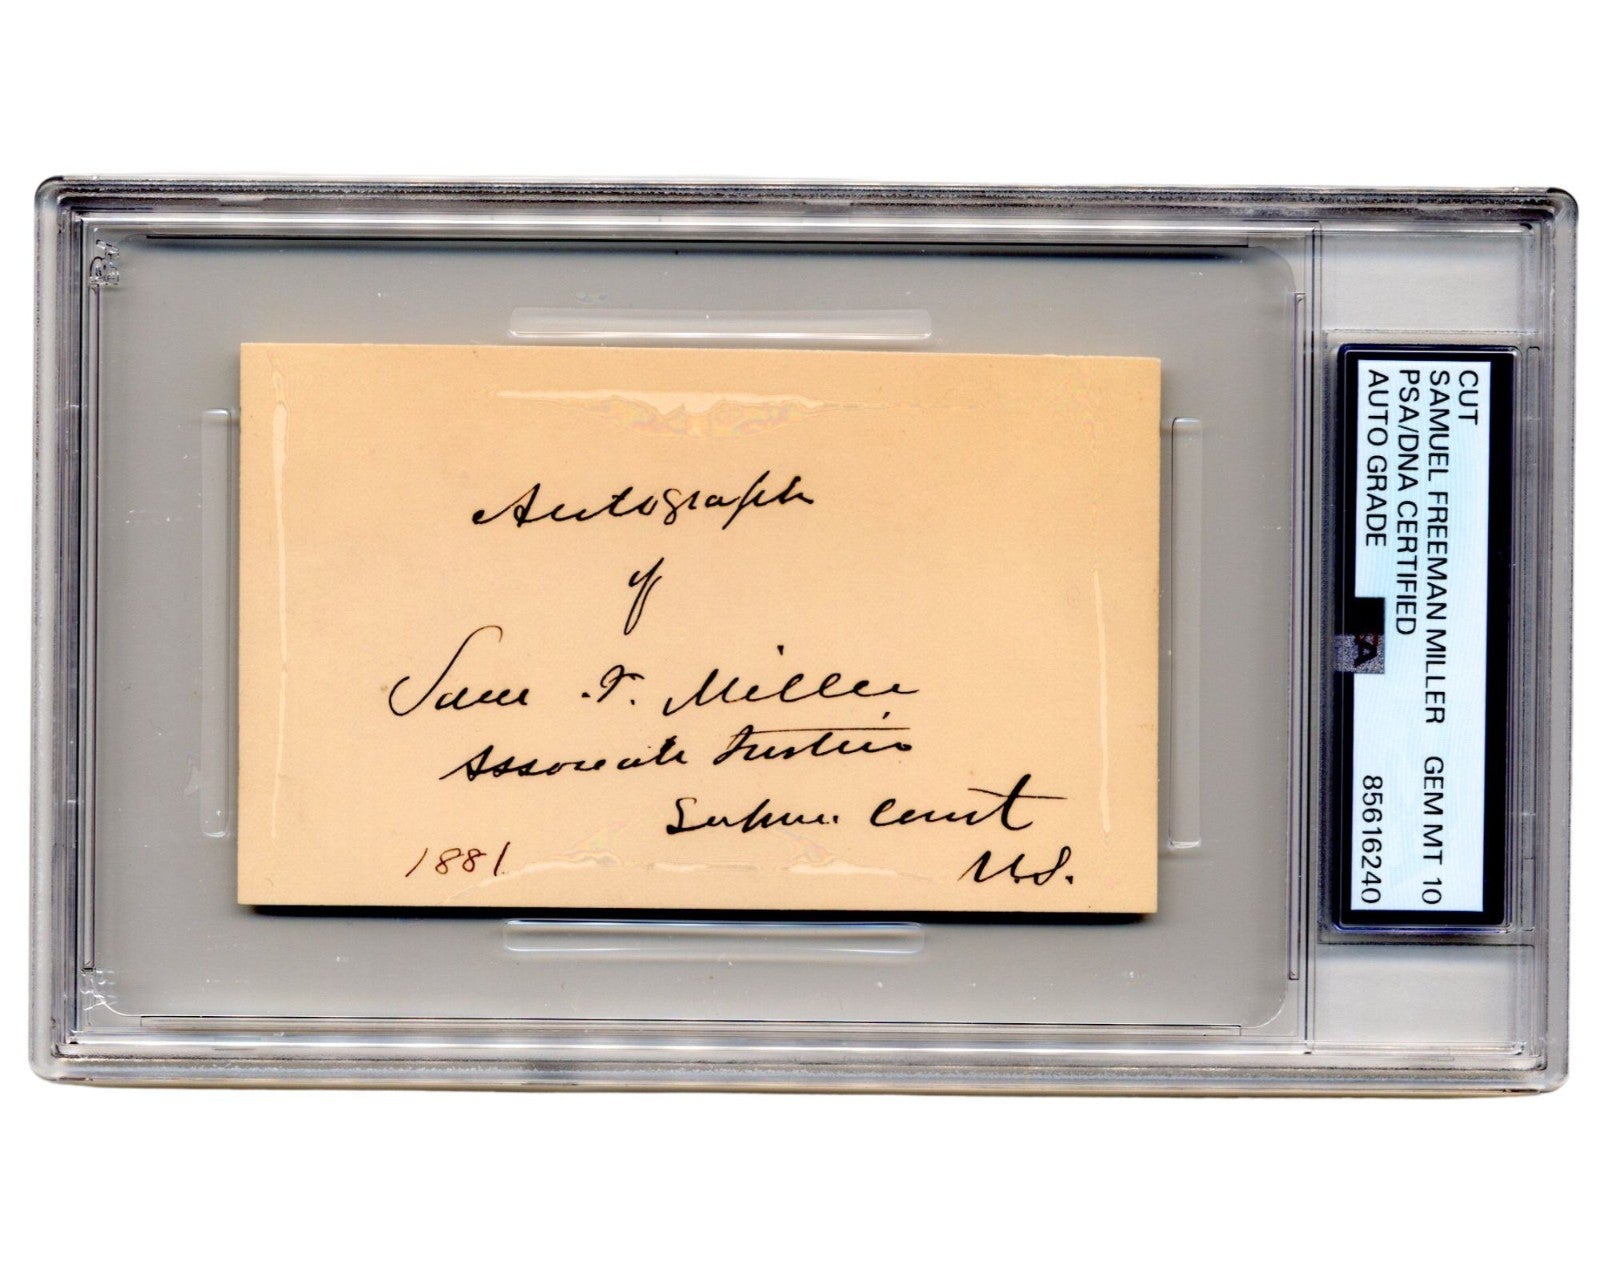 Autograph
of
Sam F. Miller
Associate Justice
Supreme Court
U.S.
1881
CUT
SAMUEL FREEMAN MILLER GEM MT 10
PSA/DNA CERTIFIED
AUTO GRADE 85616240